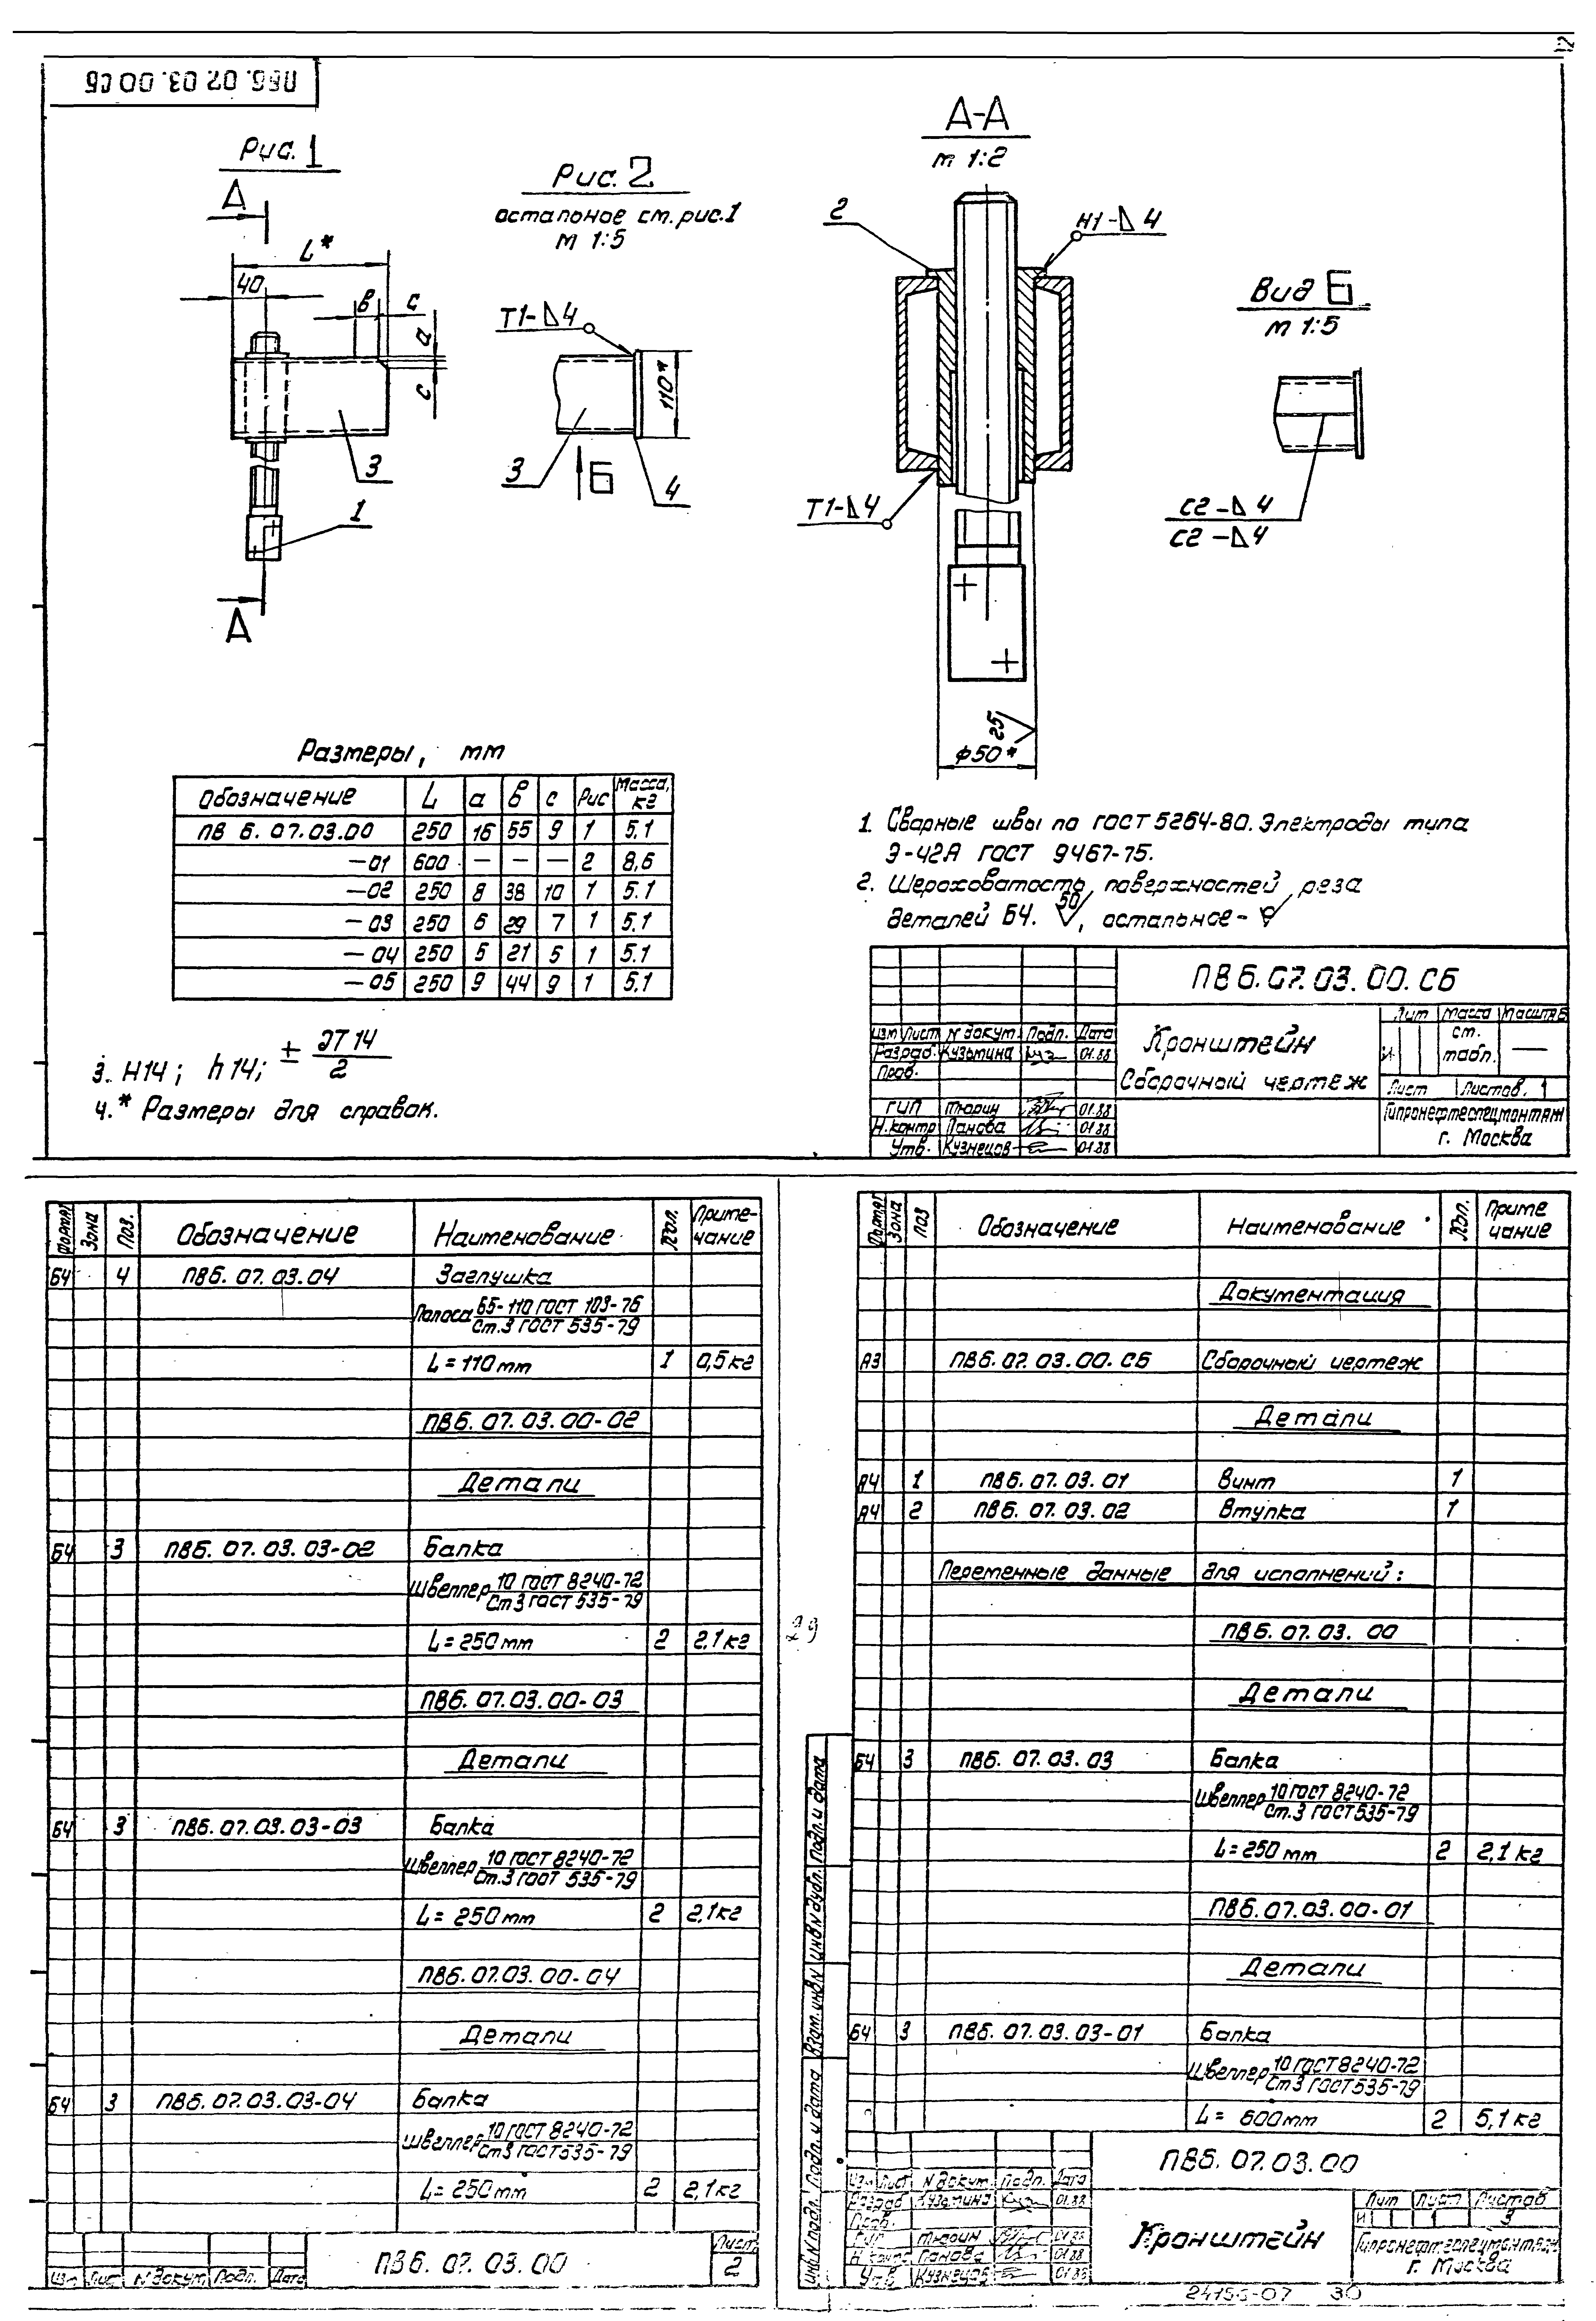 12
ПВ6.07.03.00 СБ
Рис. 1
А
L*
40
в
с
а
с
3
1
А
Рис. 2
остальное см. рис. 1
м 1:5
Т1-⊿4
110*
3
Б
4
А-А
м 1:2
2
Н1-⊿4
Т1-⊿4
25
ф50*
Вид Б
м 1:5
С2-⊿4
С2-⊿4
Размеры, мм
Обозначение | L | а | в | с | Рис | Масса, кг
ПВ 6.07.03.00 | 250 | 16 | 55 | 9 | 1 | 5,1
-01 | 600 | — | — | — | 2 | 8,6
-02 | 250 | 8 | 38 | 10 | 1 | 5.1
-03 | 250 | 6 | 29 | 7 | 1 | 5,1
-04 | 250 | 5 | 21 | 5 | 1 | 5.1
-05 | 250 | 9 | 44 | 9 | 1 | 5,1
1. Сварные швы по ГОСТ 5264-80. Электроды типа
Э-42А ГОСТ 9467-75.
2. Шероховатость поверхностей реза
деталей БЧ. 50, остальное-
3. Н14; h14; ± JT14/2
4.* Размеры для справок.
ПВ6.07.03.00.СБ
Кронштейн
Сборочный чертеж
Лит Масса Масштаб
И см. табл. —
Лист Листов. 1
Гипронефтеспецмонтаж
г. Москва
Изм Лист N докум. Подп. Дата
Разраб. Кузьмина 01.88
Пров.
ГИП Тюрин 01.88
Н.контр Панова 01.88
Утв. Кузнецов 01.88
Формат Зона Поз. Обозначение Наименование Кол. Приме-чание
БЧ 4 ПВ6.07.03.04 Заглушка
Полоса Б5-110 ГОСТ 103-76
Ст.3 ГОСТ 535-79
L=110мм 1 0,5кг
ПВ6.07.03.00-02
Детали
БЧ 3 ПВ6.07.03.03-02 Балка
Швеллер 10 ГОСТ 8240-72
Ст3 ГОСТ 535-79
L=250мм 2 2,1кг
ПВ6.07.03.00-03
Детали
БЧ 3 ПВ6.07.03.03-03 Балка
Швеллер 10 ГОСТ 8240-72
Ст.3 ГОСТ 535-79
L=250мм 2 2,1кг
ПВ6.07.03.00-04
Детали
БЧ 3 ПВ6.07.03.03-04 Балка
Швеллер 10 ГОСТ 8240-72
Ст3 ГОСТ 535-79
L=250мм 2 2,1кг
Изм Лист N докум. Подп. Дата
ПВ6.07.03.00
Лист
2
29
Формат Зона Поз Обозначение Наименование Кол. Приме чание
Документация
А3 ПВ6.07.03.00.СБ Сборочный чертеж
Детали
А4 1 ПВ6.07.03.01 Винт 1
А4 2 ПВ6.07.03.02 Втулка 1
Переменные данные для исполнений:
ПВ6.07.03.00
Детали
БЧ 3 ПВ6.07.03.03 Балка
Швеллер 10 ГОСТ 8240-72
Ст.3 ГОСТ 535-79
L=250мм 2 2,1кг
ПВ6.07.03.00-01
Детали
БЧ 3 ПВ6.07.03.03-01 Балка
Швеллер 10 ГОСТ 8240-72
Ст3 ГОСТ 535-79
L= 600мм 2 5,1кг
Инв N подл. Подп. и дата Взам. инв N Инв N дубл. Подп. и дата
ПВ6.07.03.00
Изм Лист N докум. Подп. Дата
Разраб Кузьмина 01.88
Пров.
ГИП Тюрин 01.88
Н контр Панова 01.88
Утв Кузнецов 01.88
Кронштейн
Лит Лист Листов
И 1 3
Гипронефтеспецмонтаж
г. Москва
24155-07 30